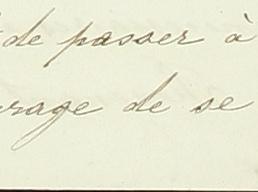 de passer à
rage de se